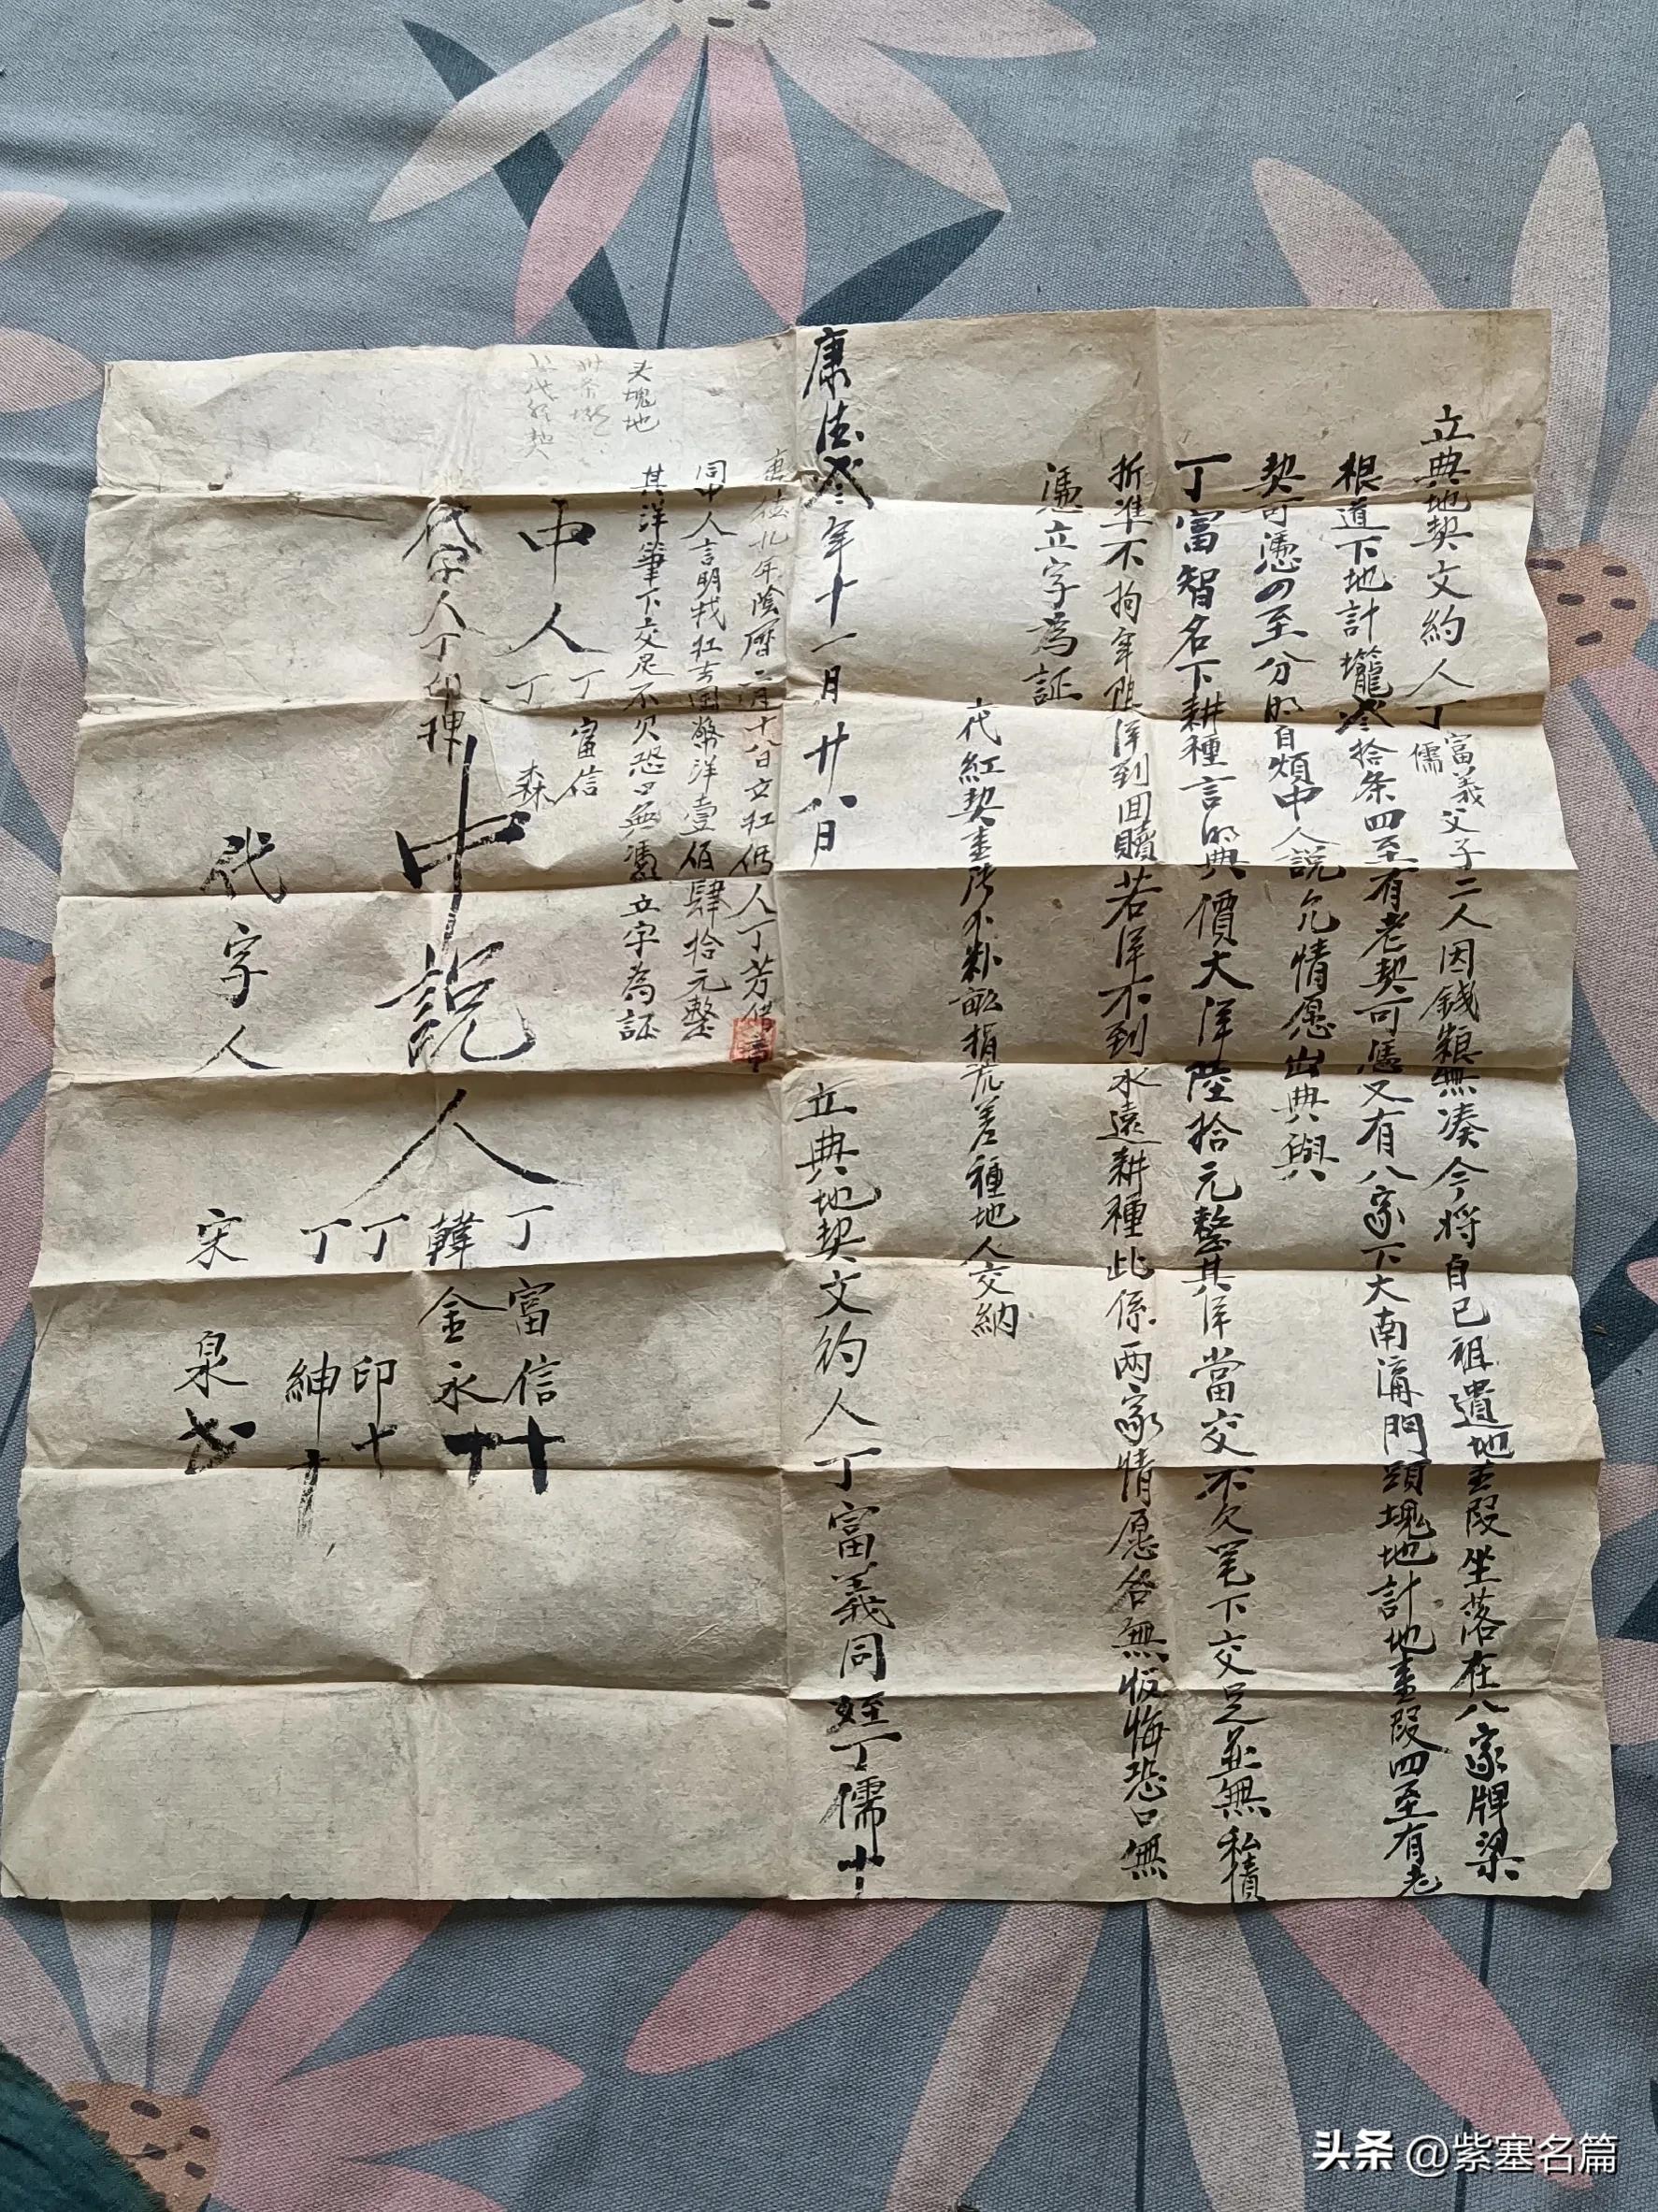 立典地契文約人丁富義儒父子二人因錢糧無凑今将自己祖遺地壹段坐落在八家牌梁
根道下地計壠叁拾条四至有老契可憑又有八家下大南溝門頭塊地計地壹段四至有老
契可憑四至分明自煩中人説允情愿出典與
丁富智名下耕種言明典價大洋陸拾元整其洋當交不欠笔下交足並無私債
折準不拘年限洋到回贖若洋不到永遠耕種此係两家情愿各無返悔恐口無
憑立字為証
代紅契壹張不斢畝捐荒差種地人交納
康德叁年十一月廿八日 立典地契文約人丁富義同姪丁儒十
康德九年陰曆二月十八日立扛價人丁芳借章
同中人言明找扛去国幣洋壹佰肆拾元整
其洋筆下交足不欠恐口無憑立字為証
中人丁富信 丁森
代字人丁印押
头塊地
卅条壠
中說人 丁富信十 韓金永十 丁印十 丁紳十
代字人 宋泉
头条 @紫塞名篇